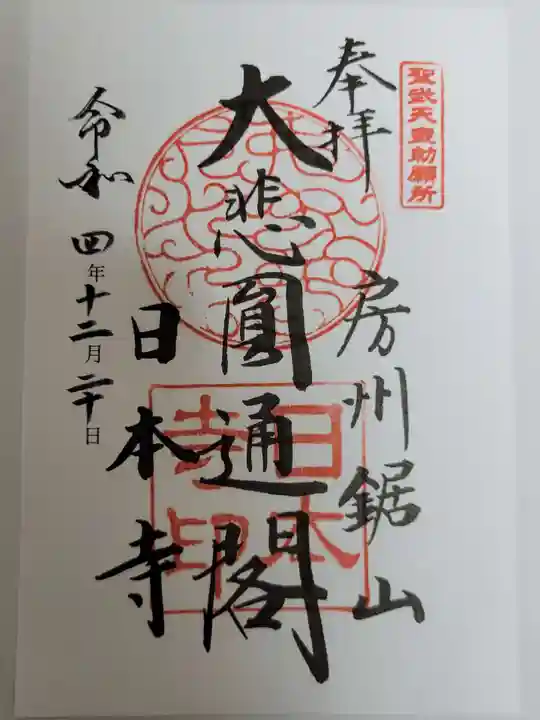 聖武天皇勅願所
奉拝
房州鋸山
大悲圓通閣
日本寺
令和四年十二月二十日
日本寺印